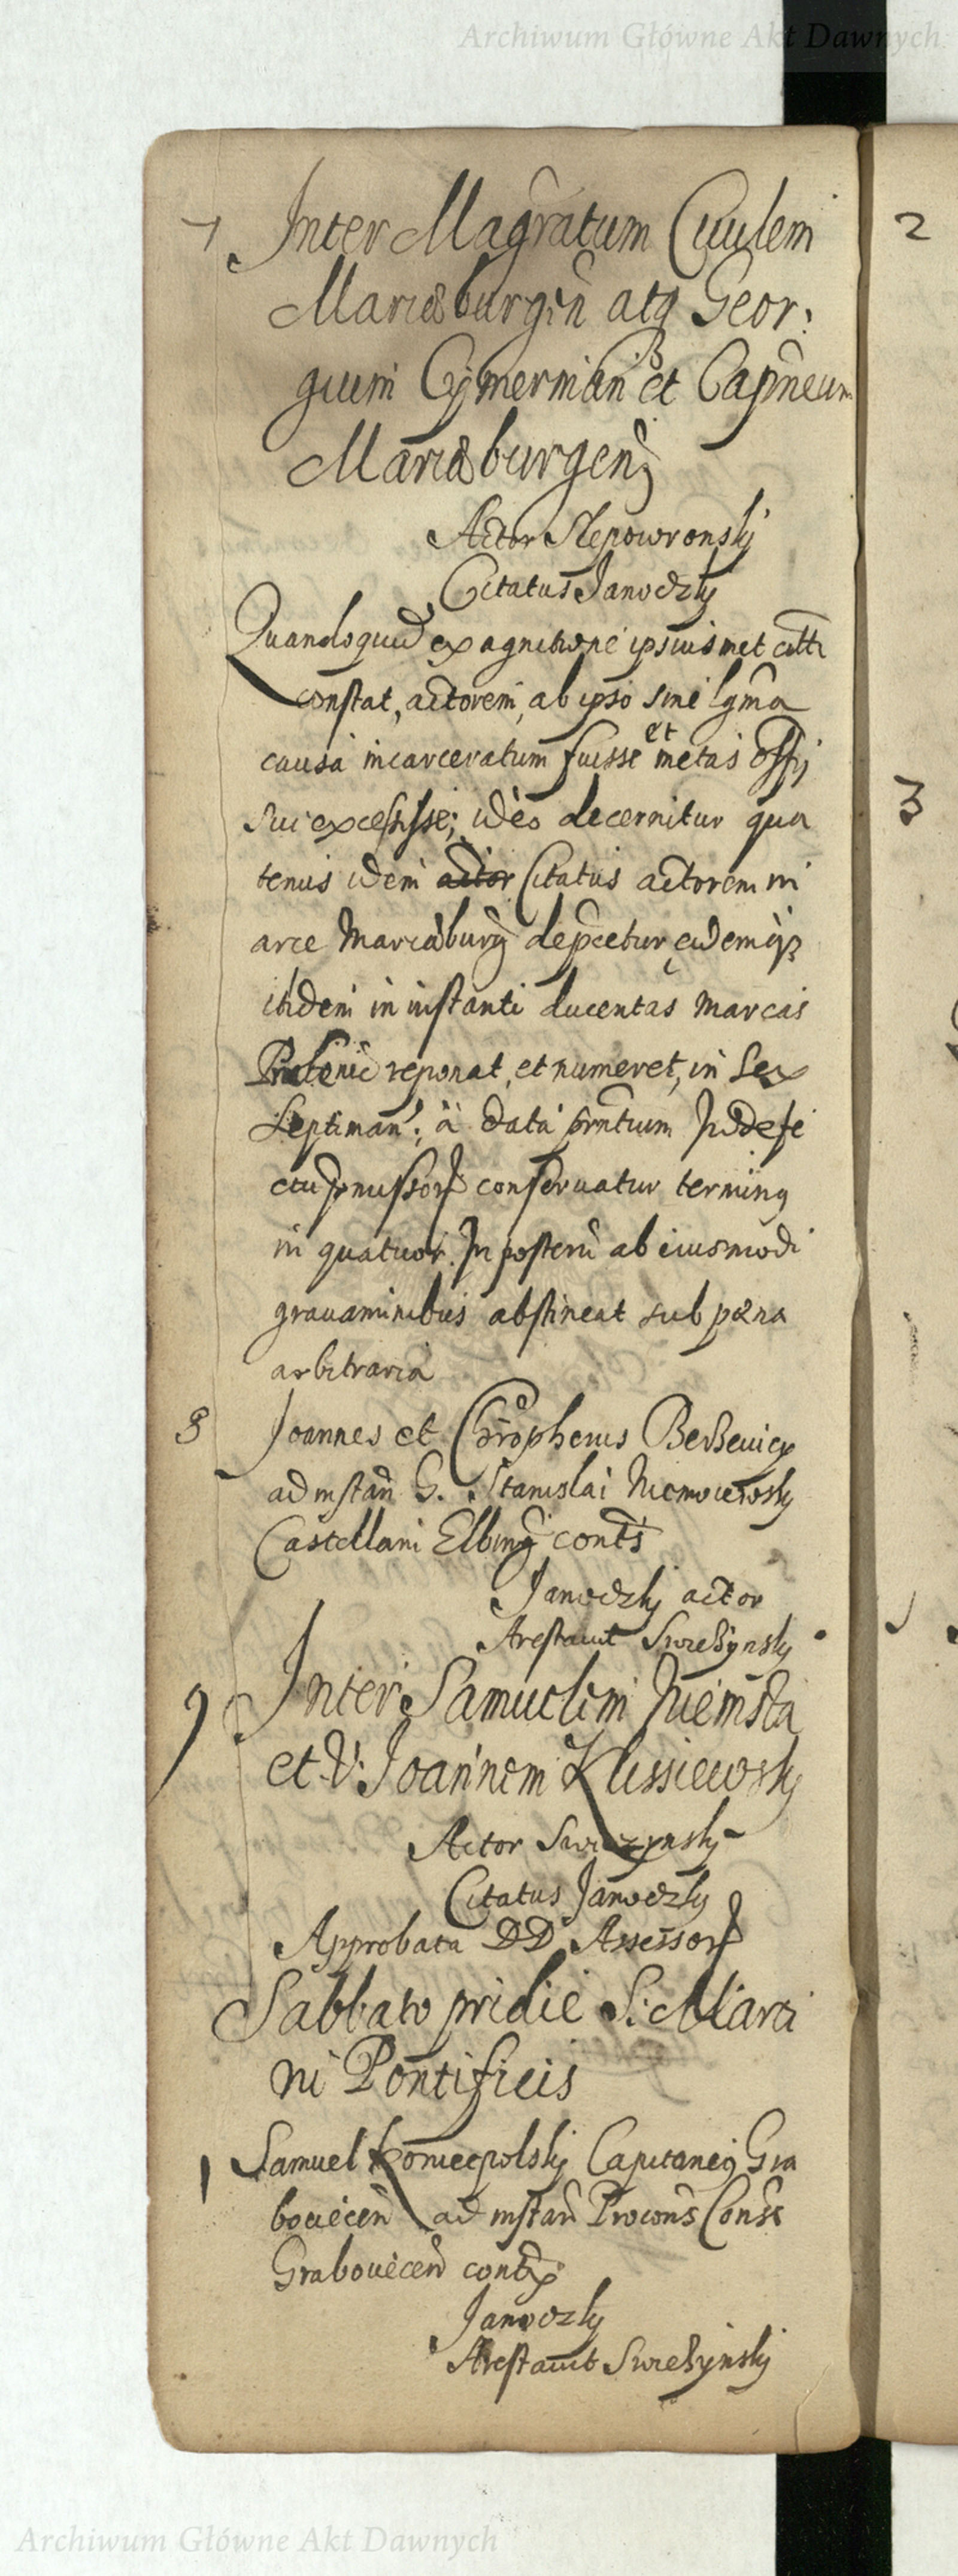 Archiwum Główne Akt Dawnych
7 Inter Magratum Civilem
Mariæburgen atq Geor:
gium Cymerman et Capneum
Mariæburgen
Actor Slepowronsky
Citatus Janodzky
Quandoquid ex agnitione ipsiusmet citti
constat, actorem, ab ipso sine lgma
causa incarceratum fuisse et metas offy
sui excessisse; ideo decernitur qua
tenus idem actor Citatus actorem in
arce Mariæburg depcetur eidemq
ibidem in instanti ducentas marcas
reponat, et numeret, in sex
septiman: à data prntium In defe
ctu conservatur terminq
in quatuor. In posterū ab eiusmodi
gravaminibus abstineat sub pæna
arbitraria
8 Joannes et Chrophorus Berzevicy
ad instan G. Stanislai Niemoiewsky
Castellani Elbing contts
Janodzky actor
Arestavit Swiezynsky
9 Inter Samuelem Niemsta
et V. Joannem Klissiewsky
Actor Swiezynsky
Citatus Janodzky
Approbata DD Assessor
Sabbato pridie S: Marti
ni Pontificis
1 Samuel Koniecpolsky Capitaneq Gra
bovecen ad instan Procons Cons
Grabovecen contx
Janodzky
Arestavit Swiezynsky
2
3
Archiwum Główne Akt Dawnych